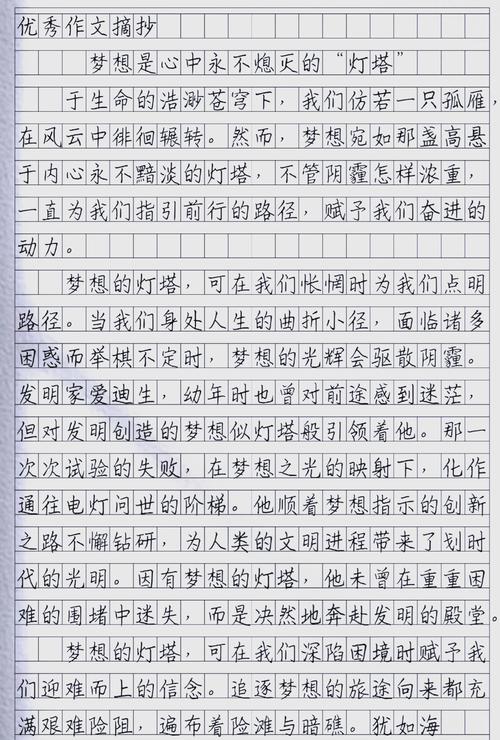 优秀作文摘抄
梦想是心中永不熄灭的“灯塔”
于生命的浩渺苍穹下，我们仿若一只孤雁，
在风云中徘徊辗转。然而，梦想宛如那盏高悬
于内心永不黯淡的灯塔，不管阴霾怎样浓重，
一直为我们指引前行的路径，赋予我们奋进的
动力。
梦想的灯塔，可在我们怅惘时为我们点明
路径。当我们身处人生的曲折小径，面临诸多
困惑而举棋不定时，梦想的光辉会驱散阴霾。
发明家爱迪生，幼年时也曾对前途感到迷茫，
但对发明创造的梦想似灯塔般引领着他。那一
次次试验的失败，在梦想之光的映射下，化作
通往电灯问世的阶梯。他顺着梦想指示的创新
之路不懈钻研，为人类的文明进程带来了划时
代的光明。因有梦想的灯塔，他未曾在重重困
难的围堵中迷失，而是决然地奔赴发明的殿堂。
梦想的灯塔，可在我们深陷困境时赋予我
们迎难而上的信念。追逐梦想的旅途向来都充
满艰难险阻，遍布着险滩与暗礁。犹如海